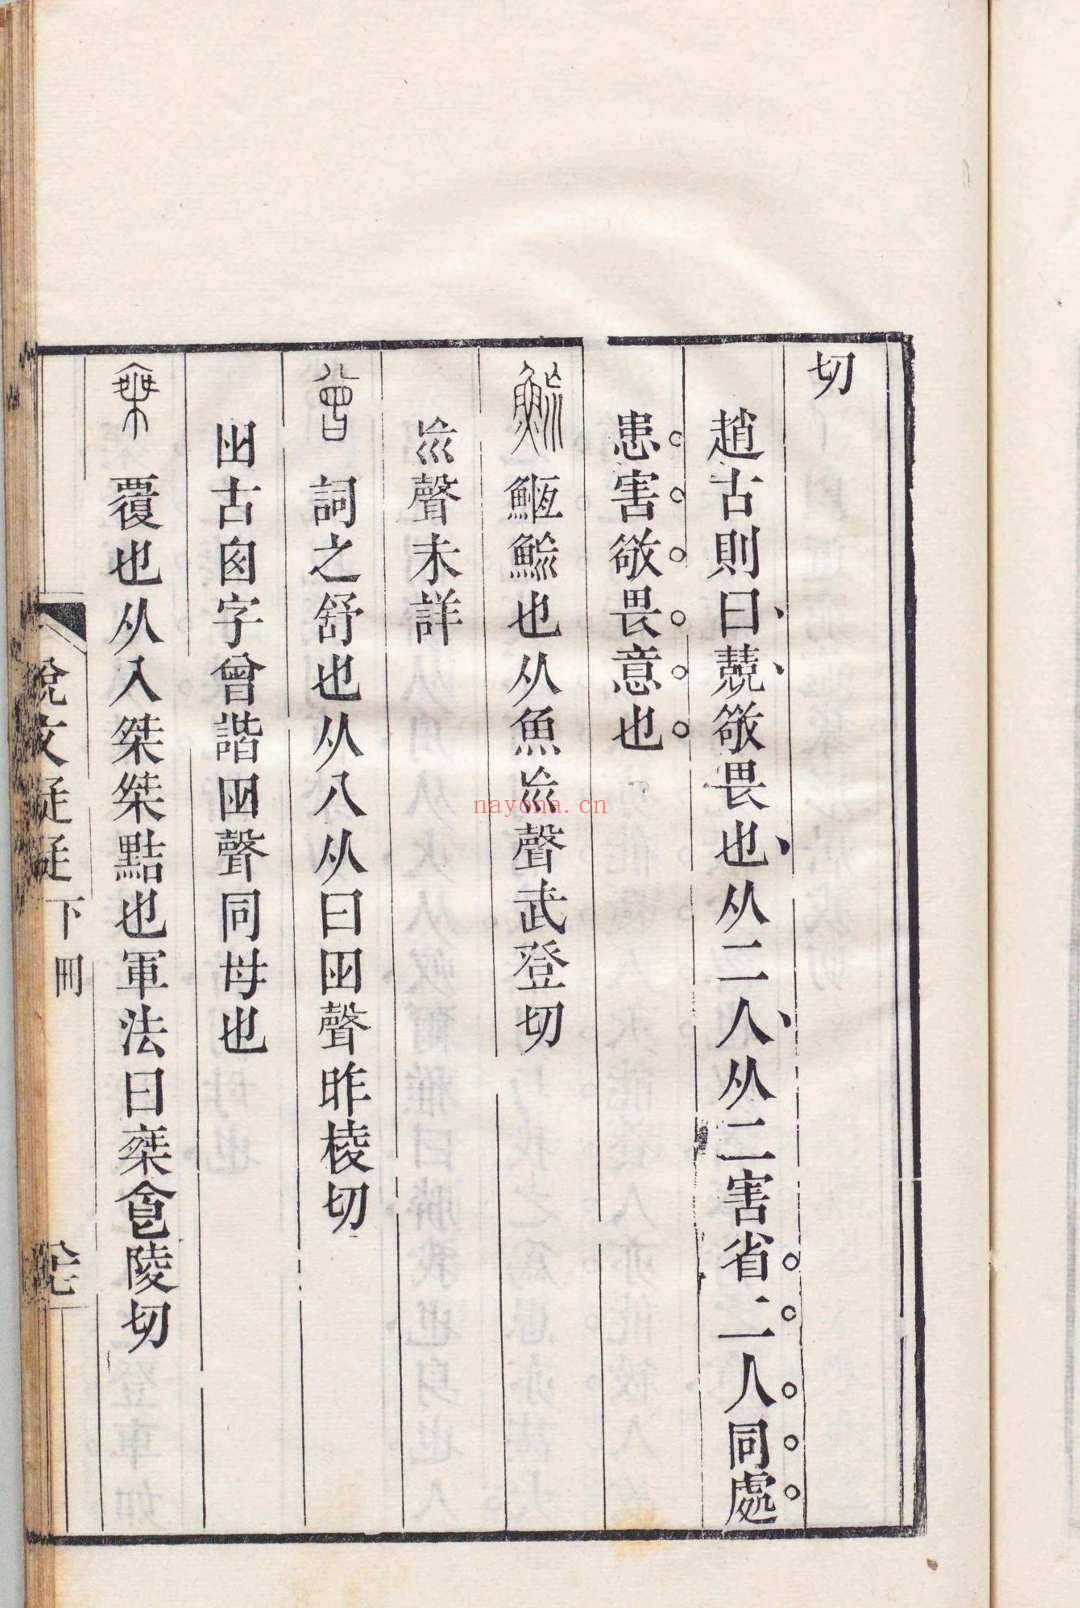 切
趙古則曰競敬畏也从二人从二害省二人同處
患害敬畏意也
䲛䱭䲛也从魚㒼聲武登切
聲未詳
曾詞之舒也从八从曰囪聲昨棱切
古囪字曾諧囪聲同母也
椉覆也从入桀桀黠也軍法曰椉食陵切
說文疑疑 下冊
nayona.cn